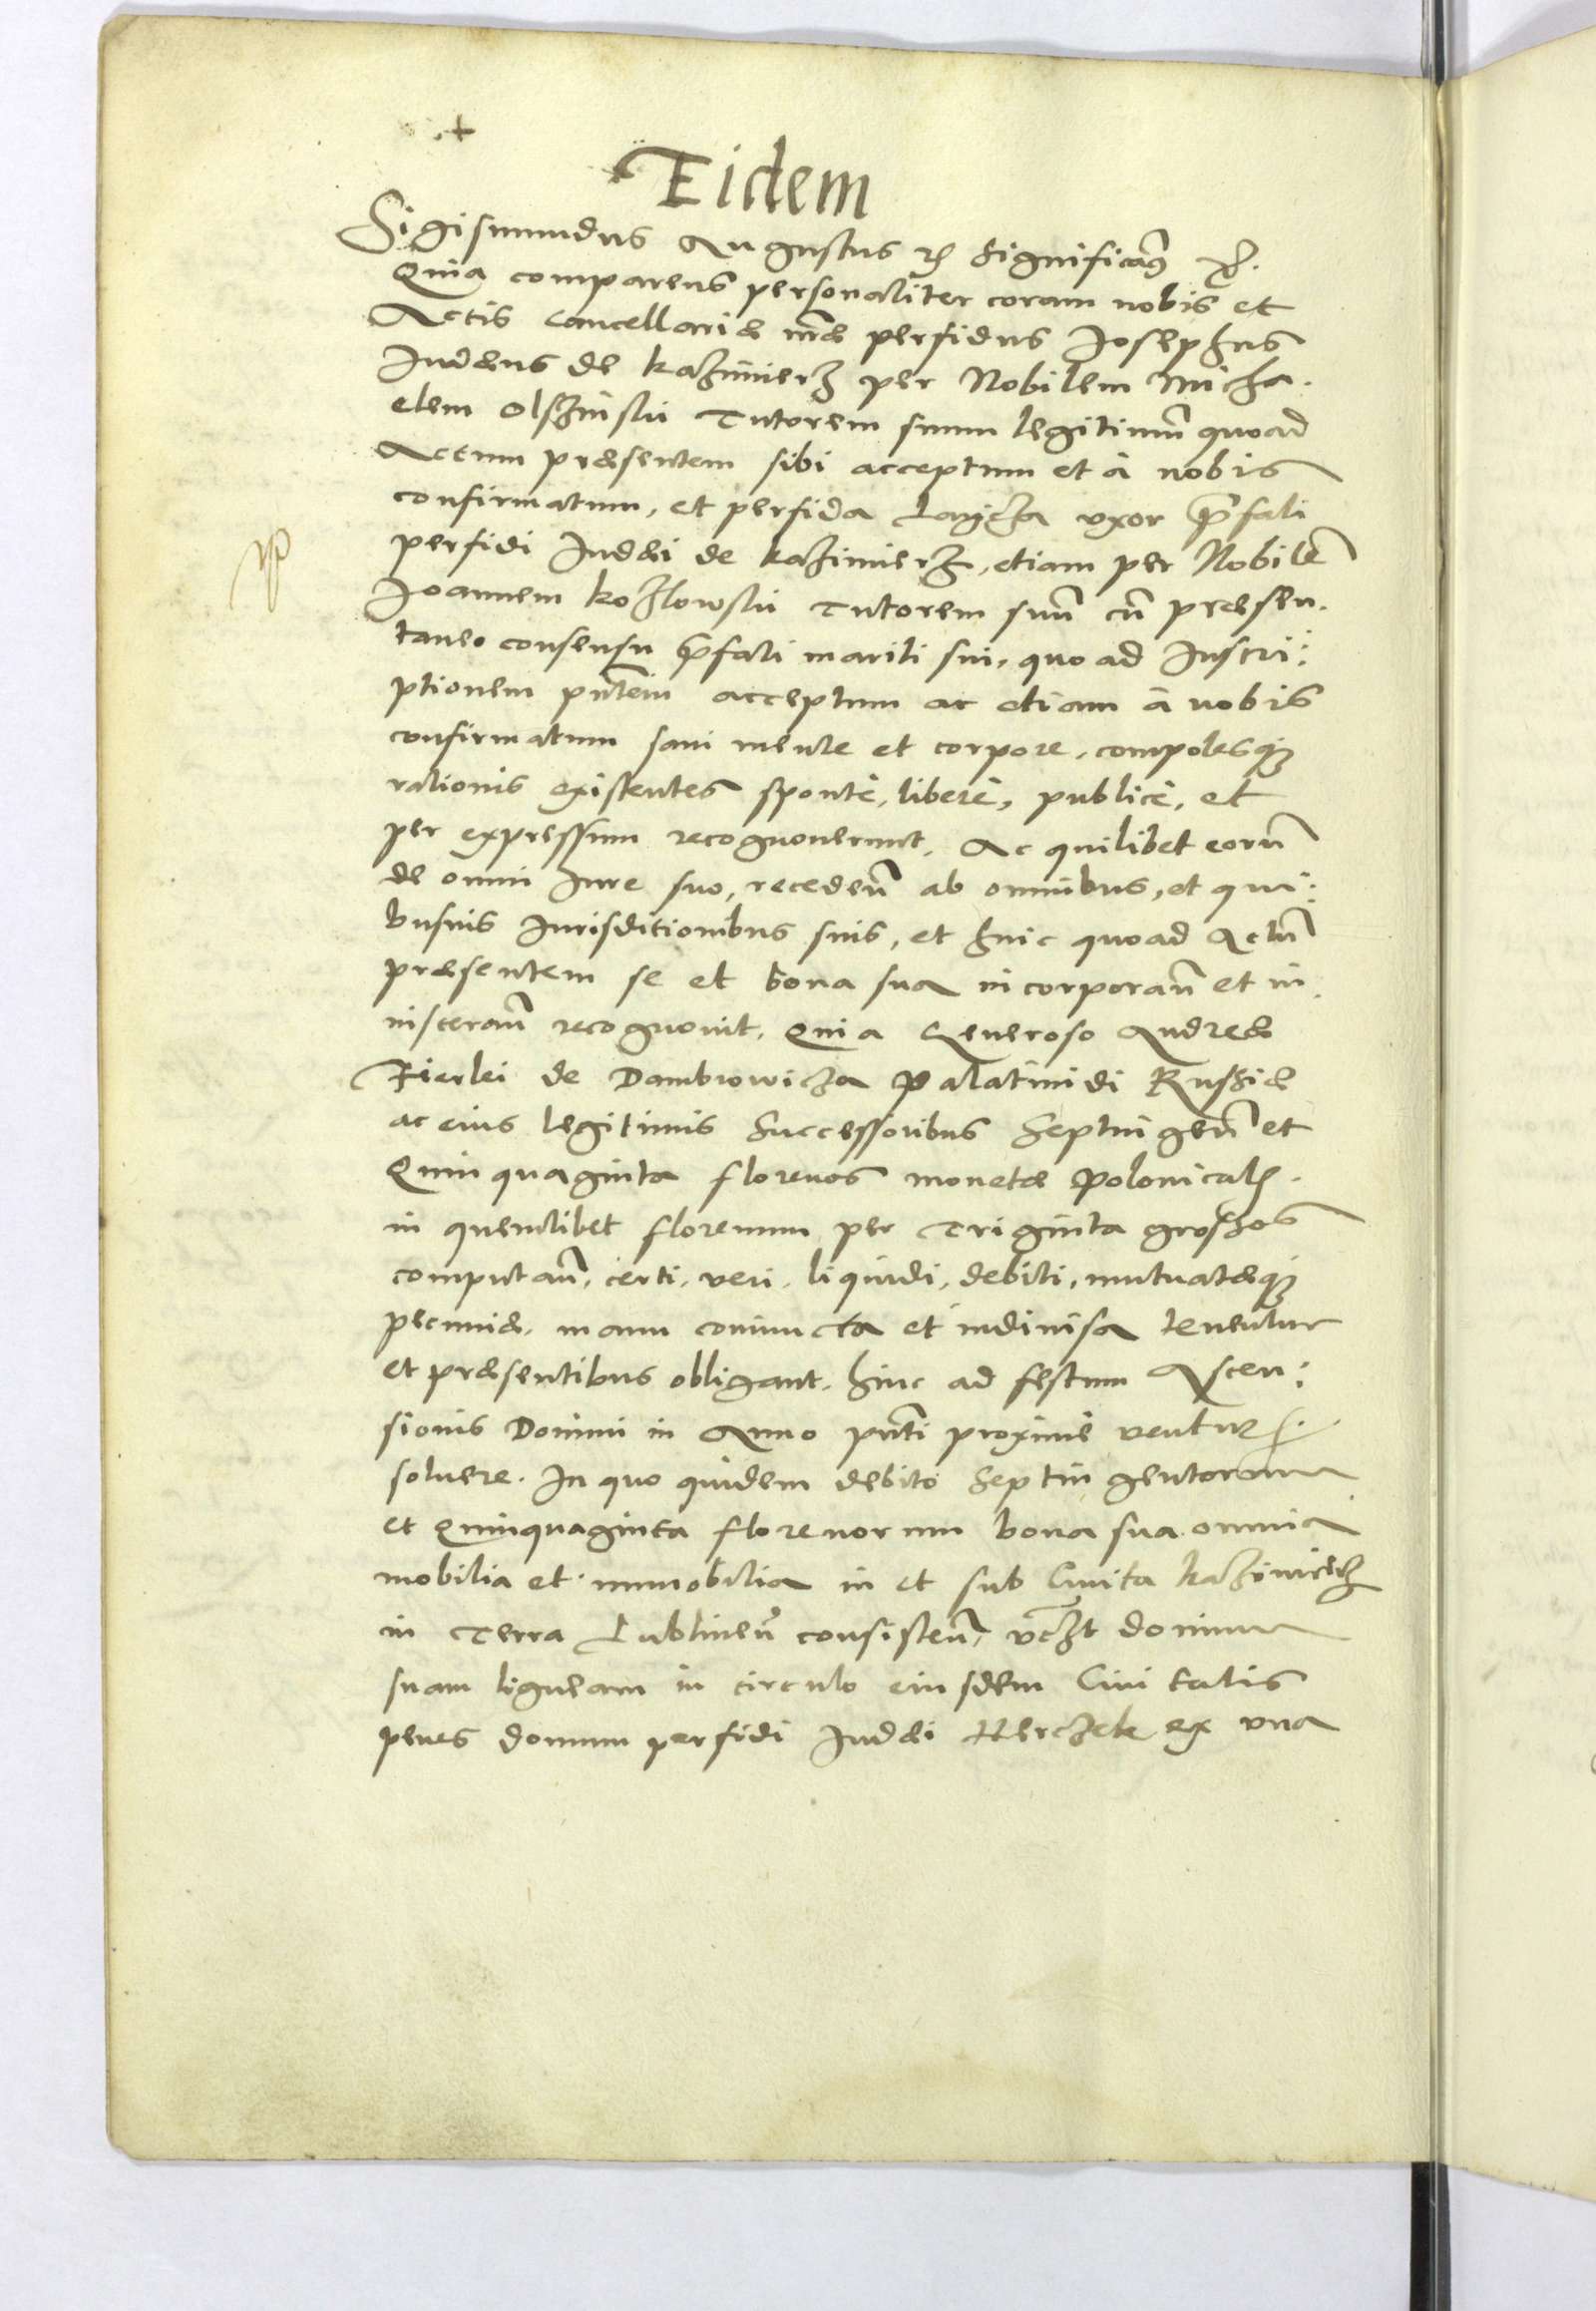 Eidem
Sigismundus Augustus etc Significamus etc.
Quia comparens personaliter coram nobis et
Actis Cancellariæ nræ perfidus Iosephus
Iudæus de Kazimierz per Nobilem Micha-
elem Olszinski Tutorem suum legitimũ quoad
Actum præsentem sibi acceptum et à nobis
confirmatum, et perfida uxor præfati
perfidi Iudæi de Kazimierz, etiam per Nobilẽ
Ioannem Kozlowski Tutorem suũ cũ præsen-
taneo consensu præfati mariti sui, quo ad Inscri:
ptionem pñtem acceptum ac etiam à nobis
confirmatum sani mente et corpore, compotesq;
rationis existentes sponte, libere, publice, et
per expressum recognoverunt. Ac quilibet eorũ
de omni Iure suo, recedeñ ab omnibus, et qui:
busuis Iurisditionibus suis, et huic quoad Actũ
præsentem se et bona sua incorporañ et in
nisterañ recognouit. Quia Generoso Andreæ
Fierlei de Dambrowicza Palatinidi Russiæ
ac eius legitimis Successoribus Septingeñ et
Quinquaginta florenos monetæ Polonicalis.
in quemlibet florenum per Triginta grossos
computañ, certi, veri, liquidi, debiti, mutuatæq;
pecuniæ, manu coniuncta et indiuisa tenentur
et præsentibus obligant. hinc ad festum Ascen:
sionis Domini in Anno pñti proxime ventur.
soluere. In quo quidem debito Septingentorum
et Quinquaginta florenorum bona sua omnia
mobilia et immobilia in et sub Ciuita Kazimierz
in Terra Lublineñ consisteñ, vczt domum
suam ligneam in circulo eiusdem Ciuitatis
penes domum perfidi Iudæi Herczek ex una